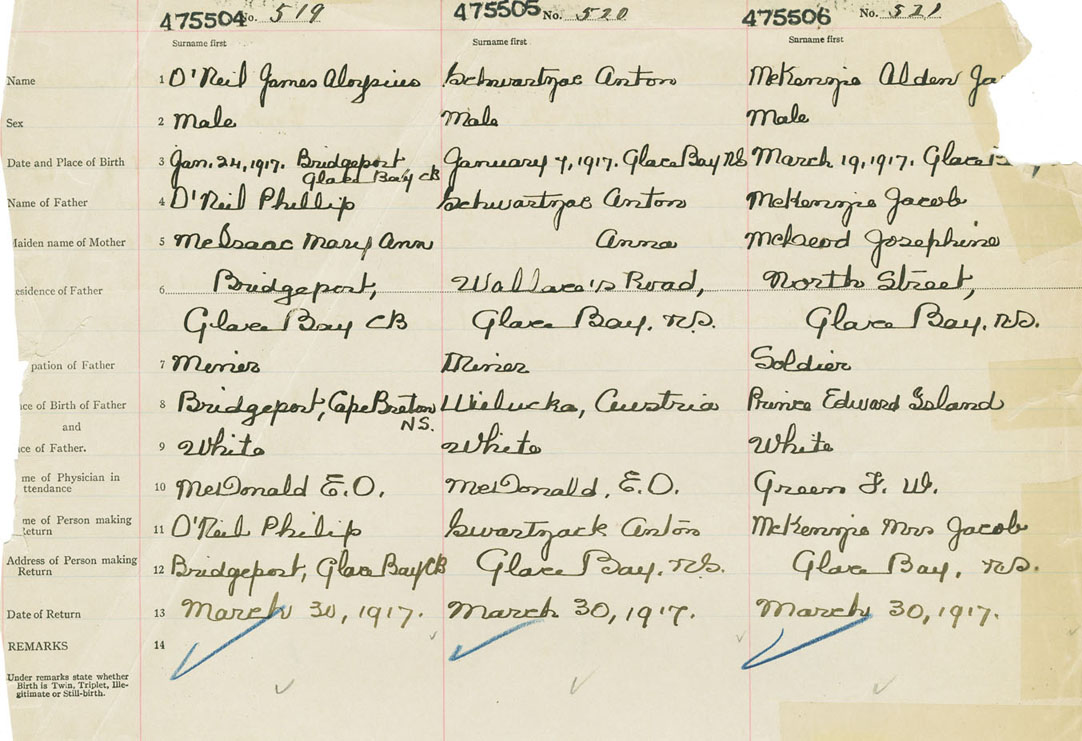 475504 No. 519 475505 No. 520 475506 No. 521
Surname first Surname first Surname first
Name 1 O'Neil James Aloysius Schwartzac Anton McKenzie Alden Ja
Sex 2 Male Male Male
Date and Place of Birth 3 Jan. 24, 1917. Bridgeport January 7, 1917. Glace Bay NS March 19, 1917. Glace B
Glace Bay CB
Name of Father 4 O'Neil Phillip Schwartzac Anton McKenzie Jacob
Maiden name of Mother 5 McIsaac Mary Ann Anna McLeod Josephine
esidence of Father 6 Bridgeport, Wallace's Road, North Street,
Glace Bay CB Glace Bay. N.S. Glace Bay. N.S.
pation of Father 7 Miner Miner Soldier
ce of Birth of Father 8 Bridgeport, Cape Breton Wielucka, Austria Prince Edward Island
and N.S.
ce of Father. 9 White White White
me of Physician in
ttendance 10 McDonald E.O. McDonald, E.O. Green F. W.
me of Person making
Return 11 O'Neil Philip Swartzack Anton McKenzie Mrs Jacob
Address of Person making
Return 12 Bridgeport, Glace Bay CB Glace Bay. N.S. Glace Bay, N.S.
Date of Return 13 March 30, 1917. March 30, 1917. March 30, 1917.
REMARKS 14
Under remarks state whether
Birth is Twin, Triplet, Ille-
gitimate or Still-birth.